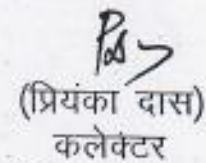 (प्रियंका दास)
कलेक्टर